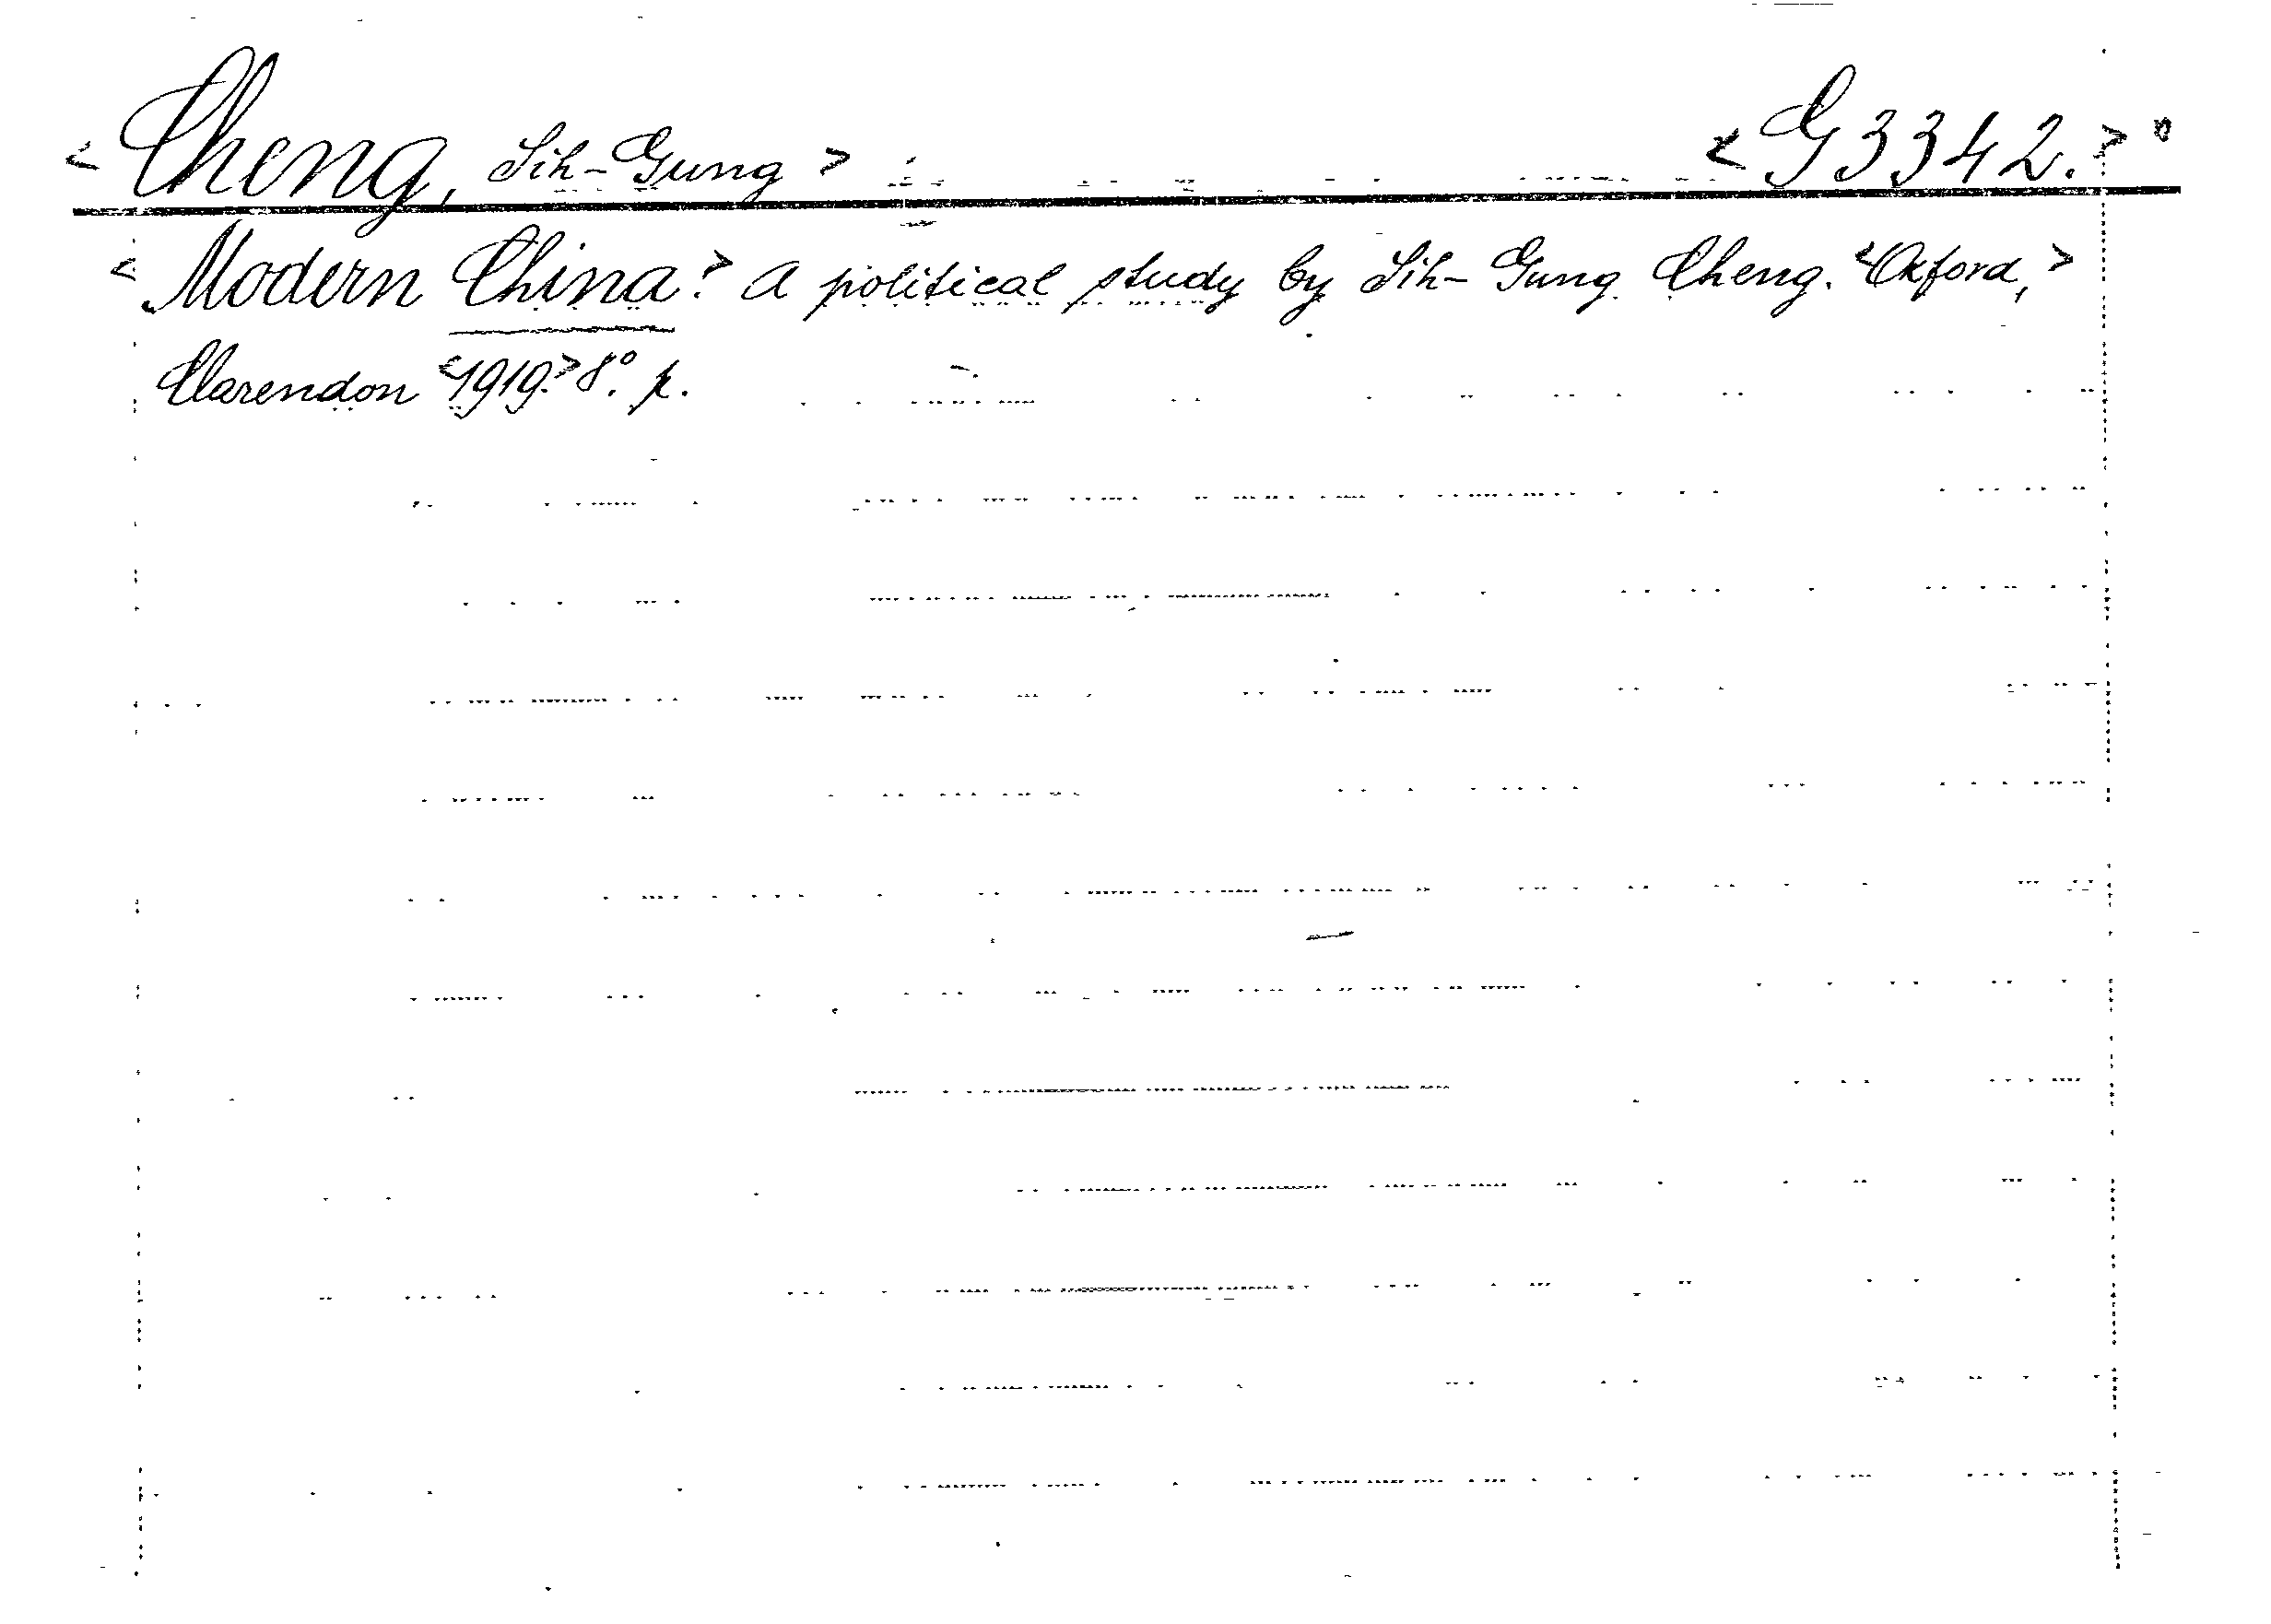 <Cheng, Sih-Gung> <G 3342.>°
<Modern China:> a political study by Sih-Gung Cheng. <Oxford,>
Clarendon <1919.> 8°. p.